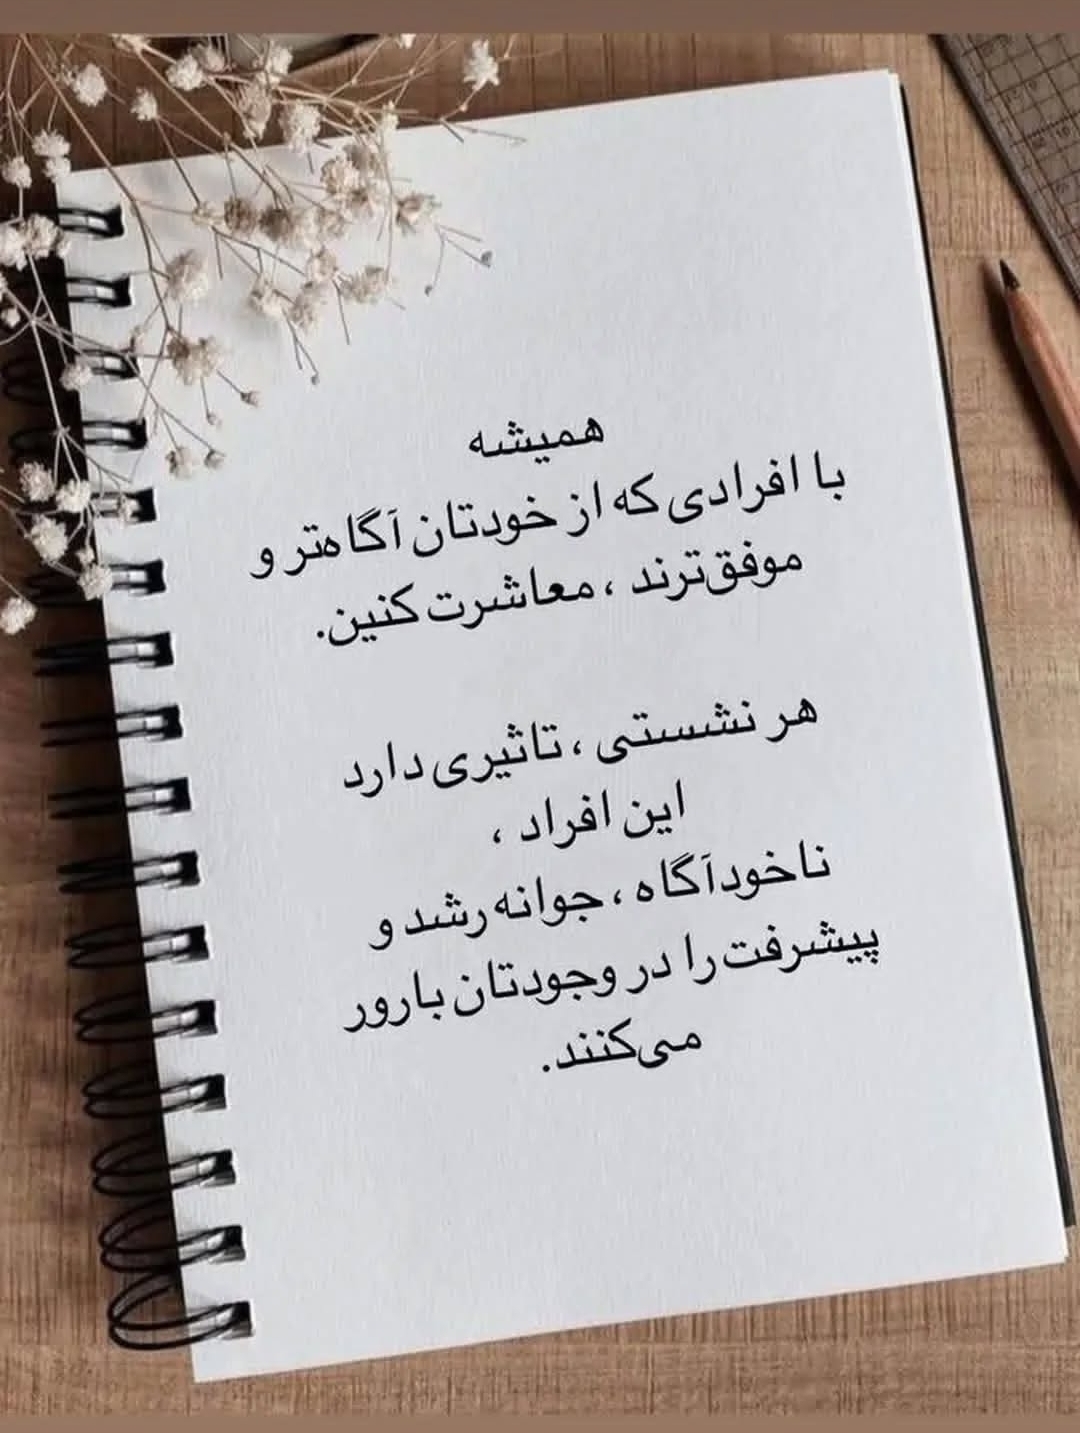 همیشه
با افرادی که از خودتان آگاه‌تر و
موفق‌ترند ، معاشرت کنین.
هر نشستی ، تاثیری دارد
این افراد ،
ناخودآگاه ، جوانه رشد و
پیشرفت را در وجودتان بارور
می‌کنند.